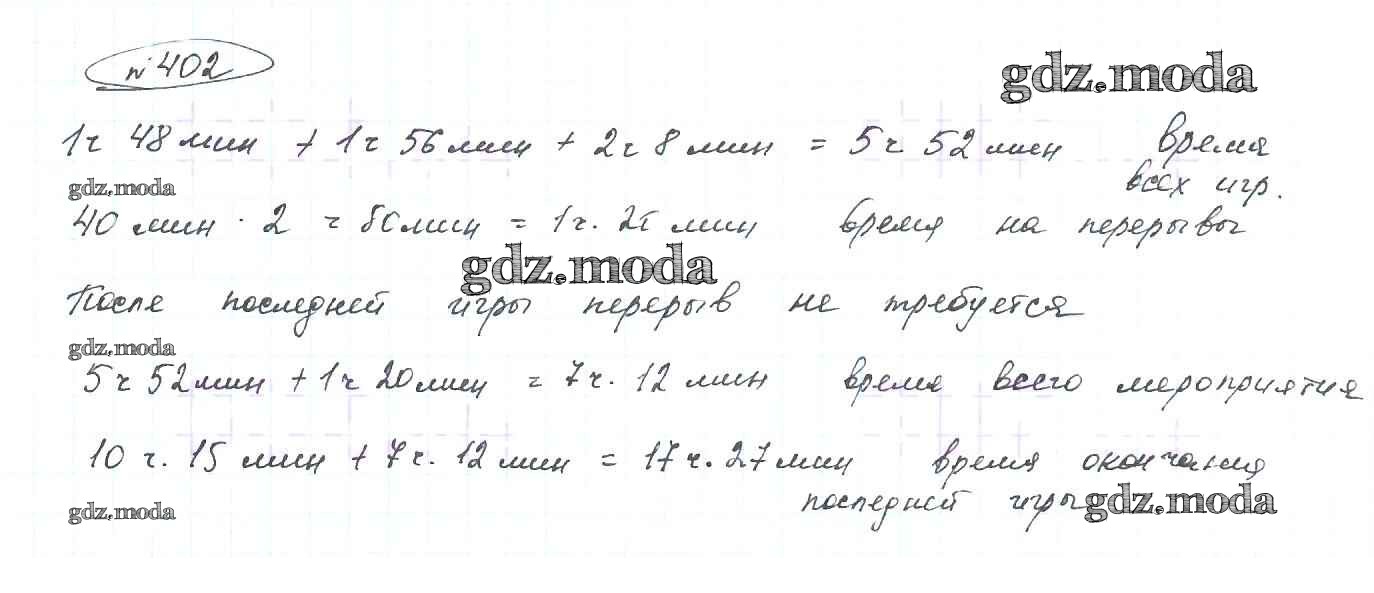 №402
gdz.moda
1ч 48 мин + 1ч 56 мин + 2ч 8 мин = 5ч 52 мин время
всех игр.
gdz.moda
40 мин · 2 = 80 мин = 1ч. 20 мин время на перерывы
gdz.moda
После последней игры перерыв не требуется
gdz.moda
5ч 52 мин + 1ч 20 мин = 7ч. 12 мин время всего мероприятия
10 ч. 15 мин + 7ч. 12 мин = 17ч. 27 мин время окончания
последней игры
gdz.moda
gdz.moda